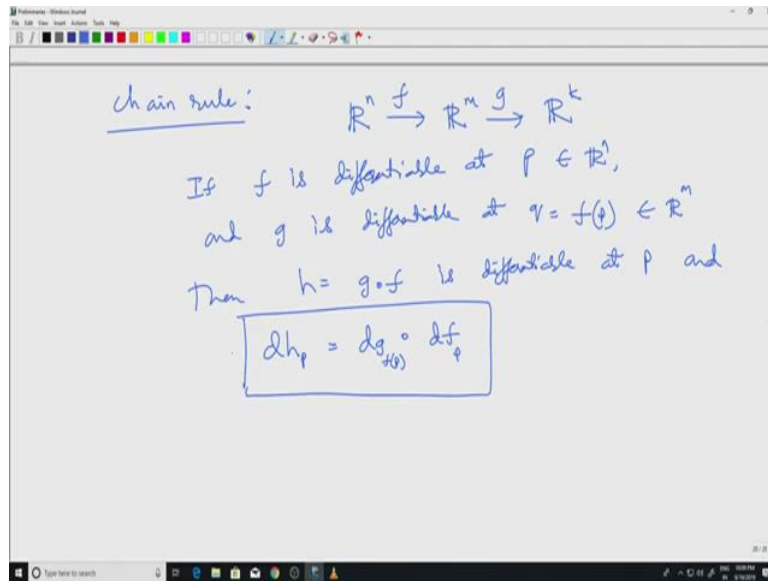 Preliminaries - Windows Journal
File Edit View Insert Actions Tools Help
Chain rule: ℝⁿ →f ℝᵐ →g ℝᵏ
If f is differentiable at p ∈ ℝⁿ,
and g is differentiable at q = f(p) ∈ ℝᵐ
Then h = g∘f is differentiable at p and
dh_p = dg_f(p) ∘ df_p
Type here to search